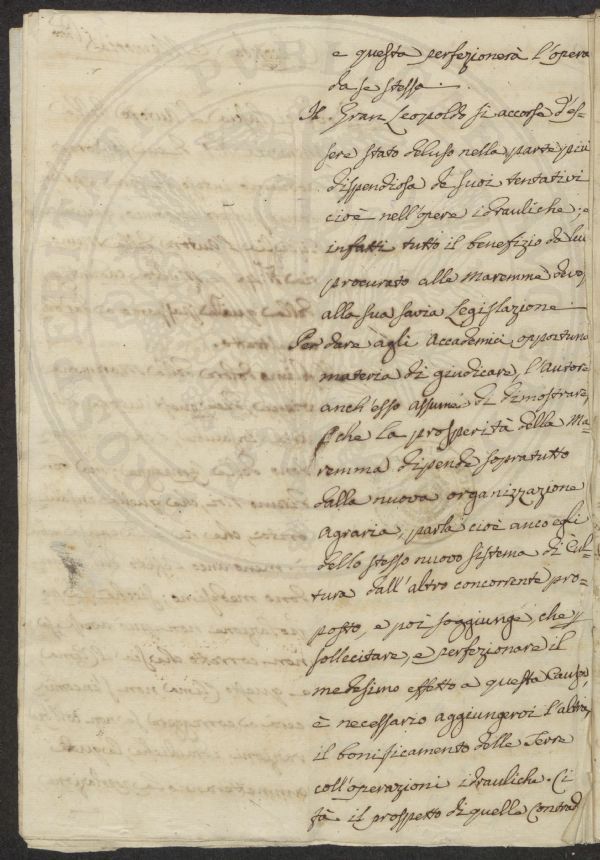 e questa perfezionerà l'opera
da se stessa.
Il Gran Leopoldo si accorse d'es-
sere stato deluso nella parte più
dispendiosa de suoi tentativi
cioè nell'opere idrauliche; e
infatti tutto il benefizio da lui
procurato alla Maremma devesi
alla sua savia Legislazione.
Per dare agli Accademici opportuna
materia di giudicare, l'Autore
anch'esso assume di dimostrare,
che la prosperità della Ma-
remma dipende sopratutto
dalla nuova organizzazione
Agraria, parla cioè anco egli
dello stesso nuovo sistema di Cul-
tura dall'altro concorrente pro-
posto, e poi soggiunge, che p
sollecitare, e perfezionare il
medesimo effetto a questa Causa,
è necessario aggiungervi l'altra,
il bonificamento delle Terre
coll'operazioni idrauliche. Ci
fà il prospetto di quella Contrad